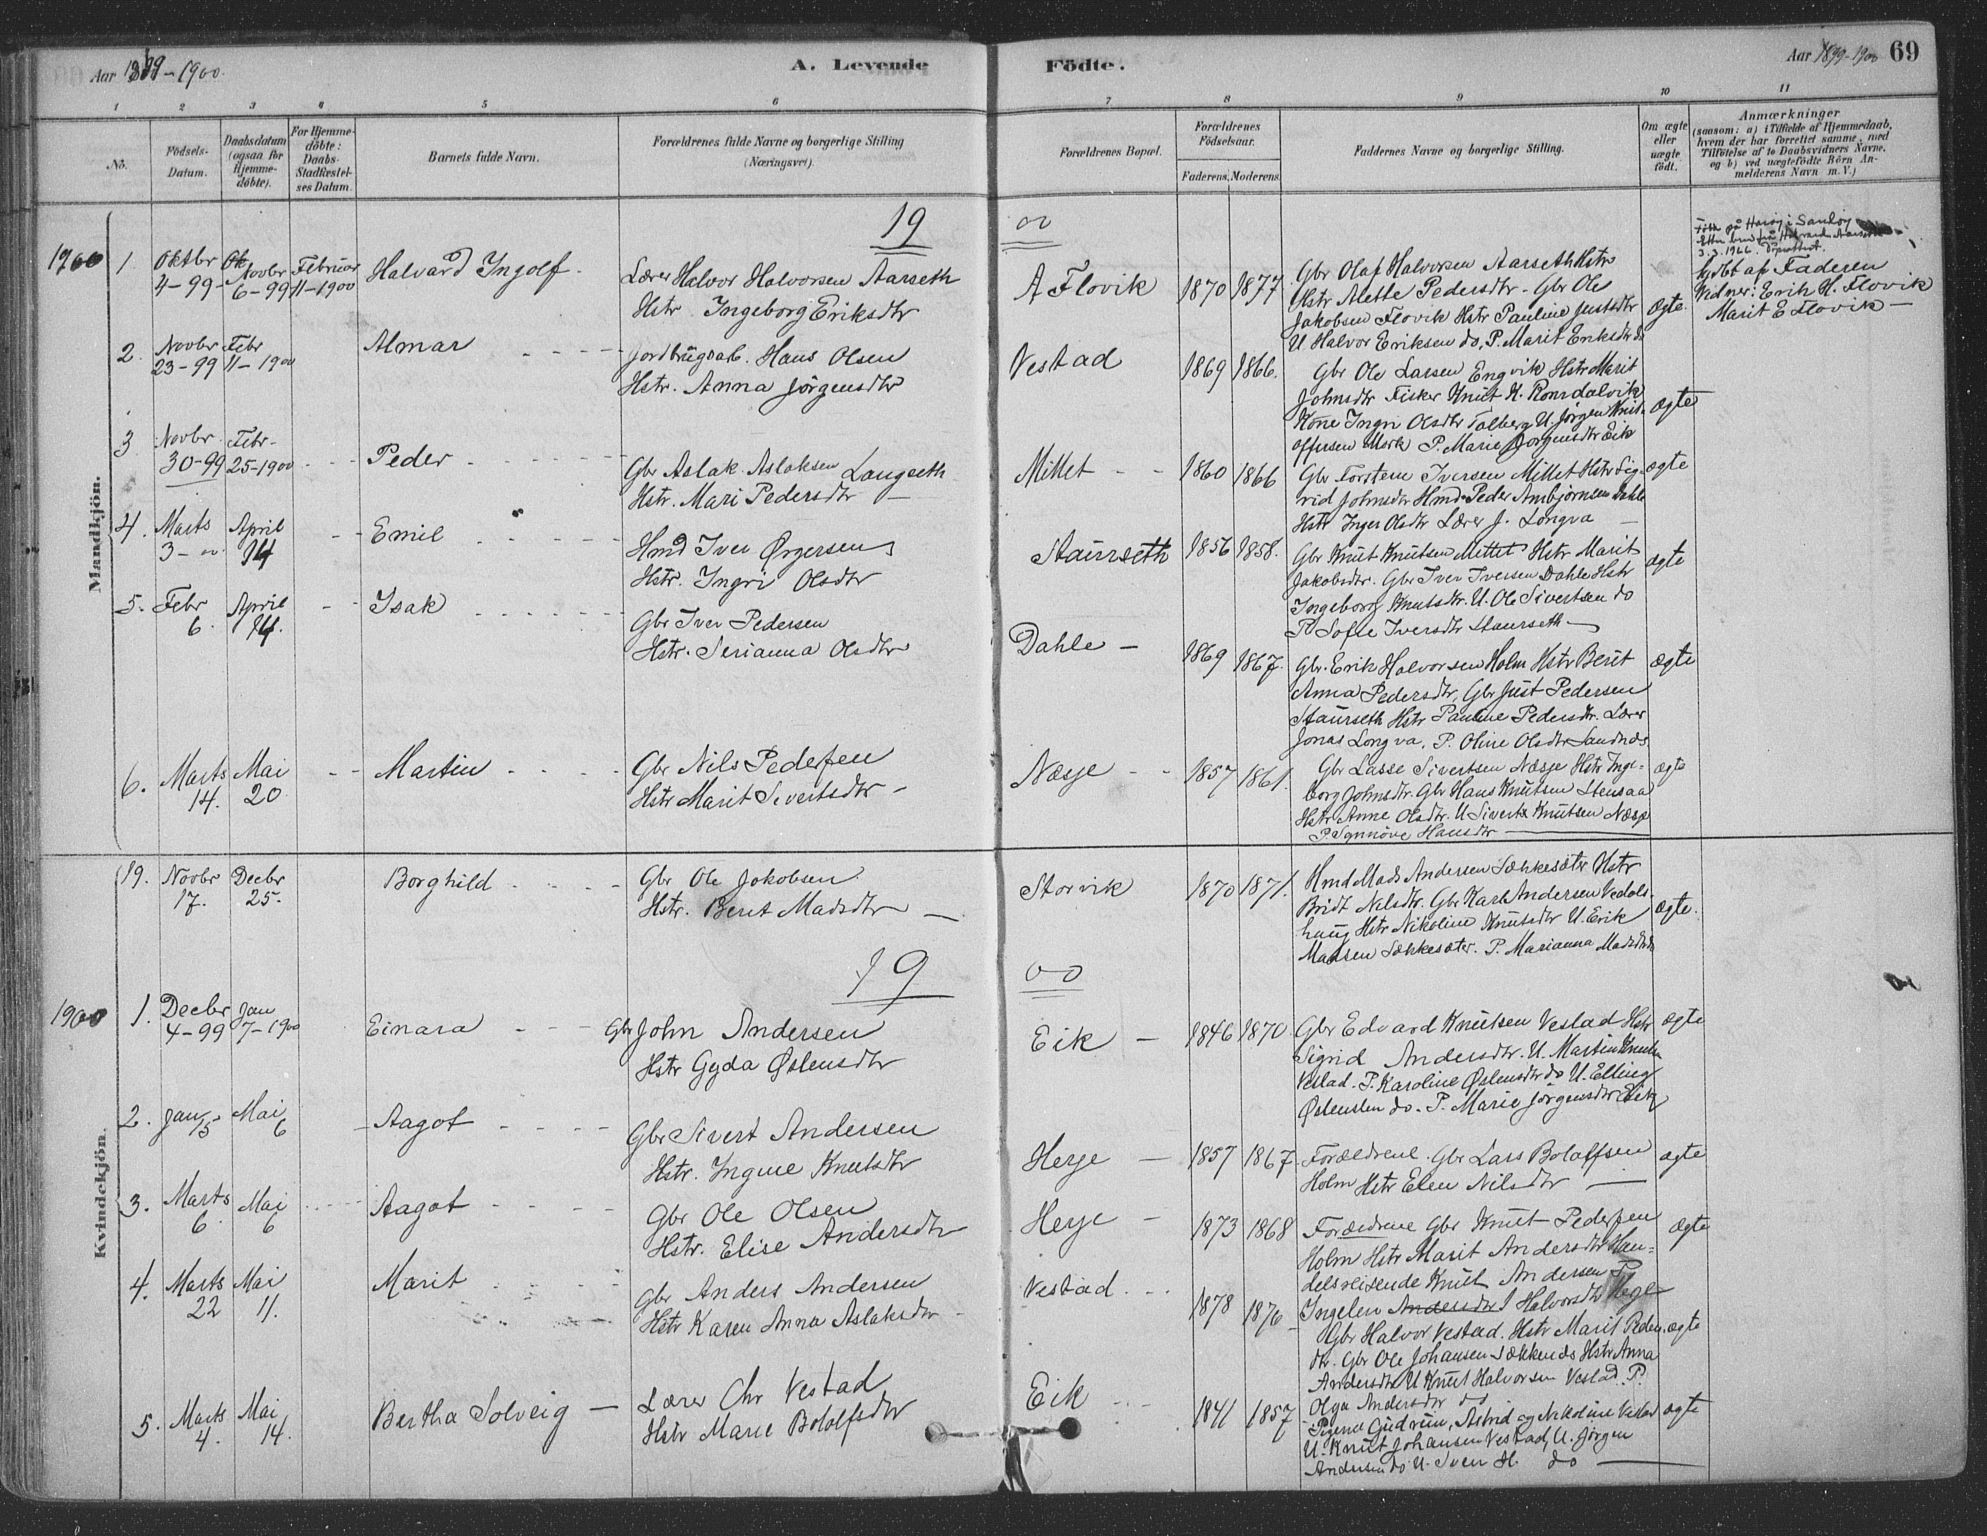 Aar 1899-1900.
A. Levende
Födte.
Aar 1899-1900 69
1 2 3 4 5 6 7 8 9 10 11
No.
Födsels-
Datum.
Daabsdatum
(ogsaa for
Hjemme-
döbte).
For Hjemme-
döbte:
Daabs-
Stadfæstel-
ses Datum.
Barnets fulde Navn.
Forældrenes fulde Navne og borgerlige Stilling
(Næringsvei).
Forældrenes Bopæl.
Forældrenes
Födselsaar.
Faderens. Moderens.
Faddernes Navne og borgerlige Stilling.
Om ægte
eller
uægte
födt.
Anmærkninger
(saasom: a) i Tilfælde af Hjemmedaab,
hvem der har forrettet samme, med
Tilföielse af to Daabsvidners Navne,
og b) ved uægtefödte Börn An-
melderens Navn m. V.)
Mandkjön.
19 00
1900
1 Oktbr
4-99
Novbr
6-99
Februar
11-1900
Halvard Ingolf
Lærer Halvor Halvorsen Aarseth
Hstr Ingeborg Eriksdtr
A Flovik
1870 1877
Gbr Olaf Halvorsen Aarseth Hstr
Hstr Mette Pedersdtr. Gbr Ole
Jakobsen Flovik Hstr Pauline Justsdtr
U Halvor Eriksen do, P. Marit Eriksdtr do
ægte
3.3.1966
hjdbt af Faderen
Vidner: Erik H. Flovik
Marit E Flovik
2. Novbr
23-99
Febr
11-1900
Almar
Jordbrugsarb. Hans Olsen
Hstr. Anna Jörgensdtr
Vestad
1869 1866.
Gbr Ole Larsen Engvik Hstr Marit
Johnsdtr Fisker Knut K. Romdalvik
Kone Ingri Olsdtr Talberg U. Jörgen Knut-
offersen Mork P. Marie Jörgensdtr Eik
ægte
3 Novbr
30-99
Febr-
25-1900
Peder
Gbr Aslak Aslaksen Langseth
Hstr. Mari Pedersdtr
Mittet
1860 1866
Gbr Torsten Iversen Mittet Hstr Sig-
rid Johnsdtr Hmd Peder Ambjörnsen Dahle
Hstr Inger Olsdtr Lærer J. Longva
ægte
4. Marts
3-00
April
14
Emil
Hmd Iver Ørgersen
Hstr. Ingri Olsdtr
Staurseth
1856 1858.
Gbr Knut Knutsen Mittet Hstr Marit
Jakobsdtr. Gbr Iver Iversen Dahle Hstr
Ingeborg Knutsdtr. U. Ole Sivertsen do
P Sofie Iversdtr Staurseth
ægte
5. Febr
6.
April
14.
Isak
Gbr Iver Pedersen
Hstr. Serianna Olsdtr
Dahle
1869 1867.
Gbr. Erik Halvorsen Holm Hstr Berit
Anna Pedersdtr, Gbr Just Pedersen
Staurseth Hstr Pauline Pedersdtr. Lærer
Jonas Longva, P. Oline Olsdtr Sandnæs
ægte
6. Marts
14.
Mai
20
Martin
Gbr Nils Pedersen
Hstr Marit Sivertsdtr
Næsje
1857 1861.
Gbr Lasse Sivertsen Næsje Hstr Inge-
borg Johnsdtr. Gbr Hans Knutsen Stensaa
Hstr Anne Olsdtr. U Sivert Knutsen Næsje
P. Synnöve Hansdtr
ægte
Kvindekjön.
19. Novbr
17.
Decbr
25.
Borghild
Gbr Ole Jakobsen
Hstr. Berit Madsdtr
Storvik
1870 1871.
Hmd Mads Andersen Sækkesæter Hstr
Bridt Nilsdtr. Gbr Karl Andersen Vedals-
haug Hstr Nikoline Knutsdtr U. Erik
Madsen Sækkesæter. P. Marianna Madsdtr do
ægte.
19 00
1900
1. Decbr
4-99
Jan
7-1900
Einara
Gbr John Andersen
Hstr Gyda Østensdtr
Eik
1846 1870
Gbr Edvard Knutsen Vestad Hstr
Sigrid Andersdtr. U. Martin Knutsen
Vestad. P. Karoline Østensdtr do U. Elling
Østensen do. P. Marie Jörgensdtr Eik
ægte
2. Jan
15
Mai
6
Aagot
Gbr Sivert Andersen
Hstr. Ingine Knutsdtr
Herje
1857 1867
Forældrene. Gbr Lars Bolaffsen
Holm Hstr Elen Nilsdtr
ægte
3. Marts
6.
Mai
6
Aagot
Gbr Ole Olsen
Hstr. Elise Andersdtr
Herje
1873 1868
Forældrene Gbr Knut Pedersen
Holm Hstr Marit Andersdtr Han-
delsreisende Knut Andersen P.
Ingelen Andersdtr Halvorsdtr
ægte
4. Marts
22
Mai
11.
Marit
Gbr Anders Andersen
Hstr Karen Anna Aslaksdtr
Vestad
1878 1876
Gbr Halvor Vestad. Hstr Marit Peders
dtr. Gbr Ole Johansen Sækkenæs Hstr Anna
Andersdtr U Knut Halvorsen Vestad. P.
Olga Andersdtr do
ægte
5. Marts
4.
Mai
14.
Bertha Solveig
Lærer Chr Vestad
Hstr Marie Bololfsdtr
Eik
1841 1857
Pigerne Gudrun, Astrid og Nikoline Vestad
U. Knut Johansen Vestad, U. Jörgen
Andersen do U. Sven H. do
ægte